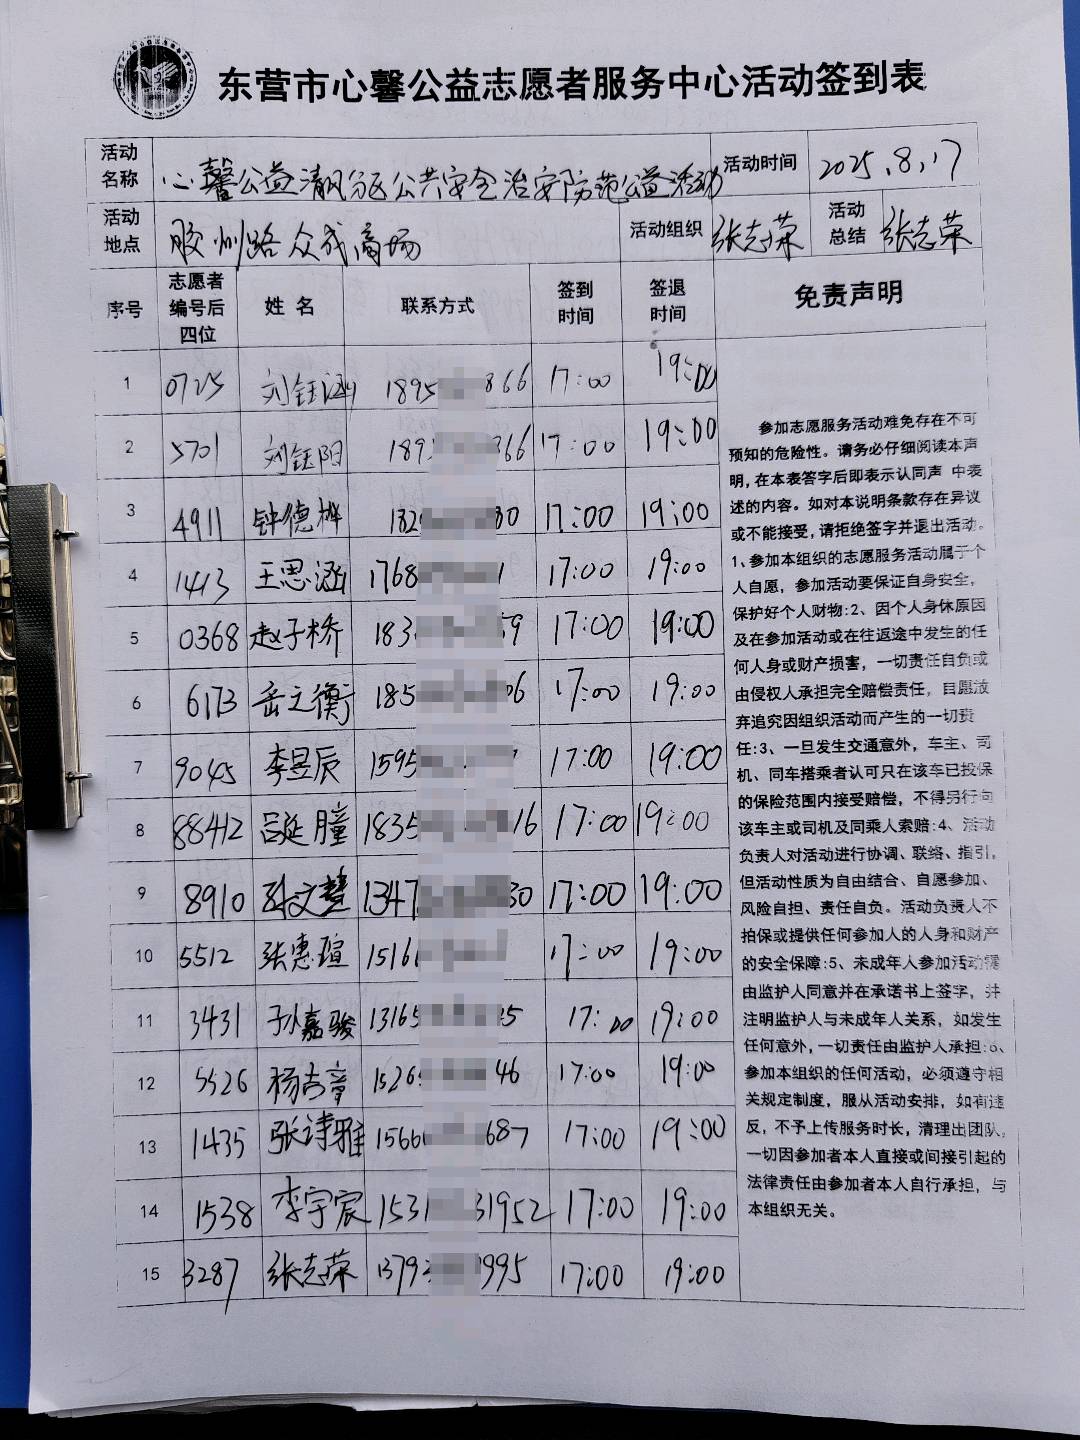 东营市心馨公益志愿者服务中心活动签到表
活动名称 心馨公益清风分队公共安全治安防范公益活动 活动时间 2025.8.17
活动地点 胶州路众成商场 活动组织 张志荣 活动总结 张志荣
序号 志愿者编号后四位 姓名 联系方式 签到时间 签退时间 免责声明
1 0725 刘钰涵 1895 866 17:00 19:00
2 5701 刘钰阳 189 366 17:00 19:00
3 4911 钟德桦 182 30 17:00 19:00
4 1413 王思涵 1768 1 17:00 19:00
5 0368 赵子桥 183 59 17:00 19:00
6 6173 岳之衡 185 06 17:00 19:00
7 9045 李昱辰 1595 17:00 19:00
8 88412 吕延瞳 1835 16 17:00 19:00
9 8910 孙文慧 1347 30 17:00 19:00
10 5512 张惠瑄 1516 17:00 19:00
11 3431 孙嘉骏 13165 35 17:00 19:00
12 5526 杨吉章 1526 46 17:00 19:00
13 1435 张诗雅 1566 687 17:00 19:00
14 1538 李宇宸 153 31952 17:00 19:00
15 3287 张志荣 1379 995 17:00 19:00
参加志愿服务活动难免存在不可
预知的危险性。请务必仔细阅读本声
明,在本表签字后即表示认同声 中表
述的内容。如对本说明条款存在异议
或不能接受,请拒绝签字并退出活动。
1、参加本组织的志愿服务活动属于个
人自愿，参加活动要保证自身安全,
保护好个人财物:2、因个人身休原因
及在参加活动或在往返途中发生的任
何人身或财产损害，一切责任自负或
由侵权人承担完全赔偿责任，自愿放
弃追究因组织活动而产生的一切责
任:3、一旦发生交通意外，车主、司
机、同车搭乘者认可只在该车已投保
的保险范围内接受赔偿，不得另行向
该车主或司机及同乘人索赔:4、活动
负责人对活动进行协调、联络、指引,
但活动性质为自由结合、自愿参加、
风险自担、责任自负。活动负责人不
担保或提供任何参加人的人身和财产
的安全保障:5、未成年人参加活动需
由监护人同意并在承诺书上签字，并
注明监护人与未成年人关系，如发生
任何意外,一切责任由监护人承担:6、
参加本组织的任何活动，必须遵守相
关规定制度，服从活动安排，如有违
反，不予上传服务时长，清理出团队,
一切因参加者本人直接或间接引起的
法律责任由参加者本人自行承担，与
本组织无关。